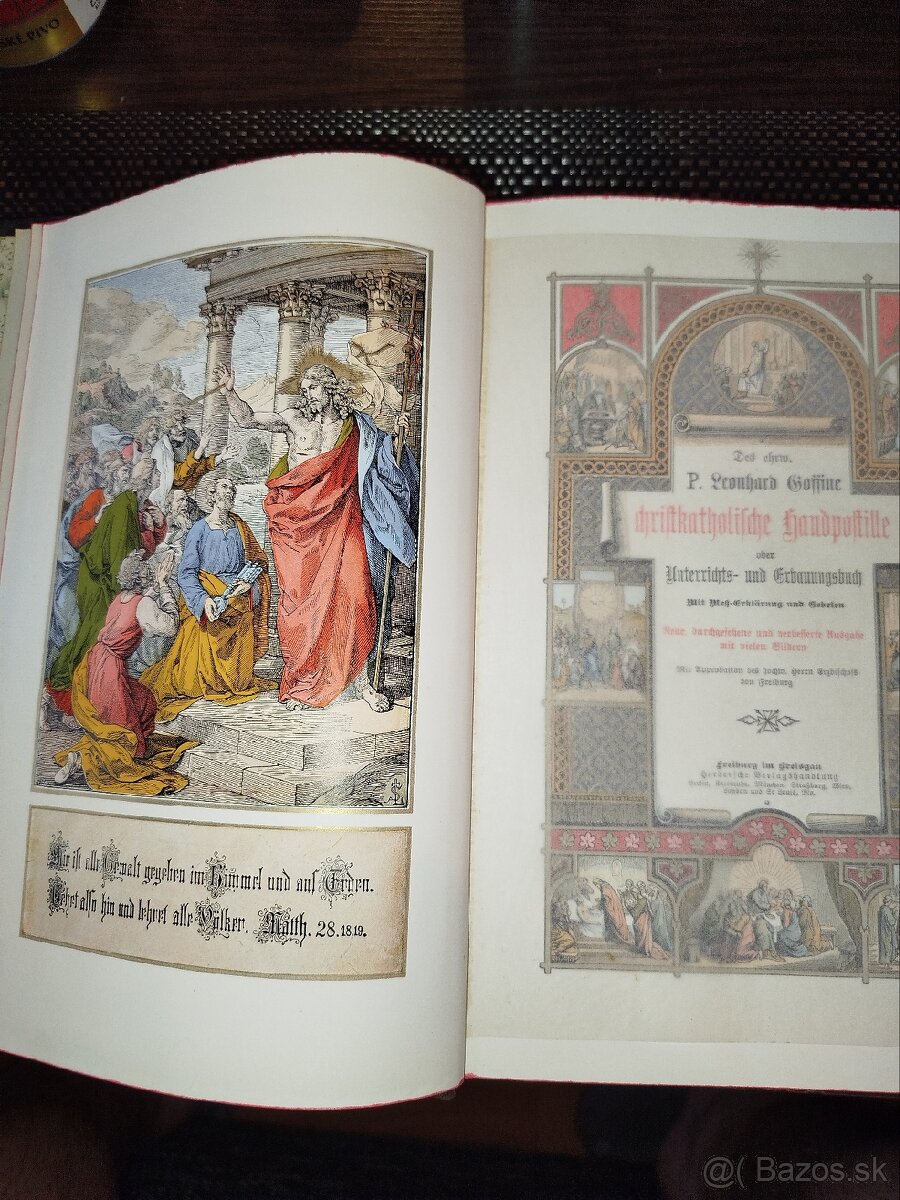 SKÉ PIVO
Mir ist alle Gewalt gegeben im Himmel und auf Erden.
Gehet also hin und lehret alle Völker. Matth. 28.18.19.
Des ehrw.
P. Leonhard Goffine
christkatholische Handpostille
oder
Unterrichts- und Erbauungsbuch
Mit Meß-Erklärung und Gebeten
Neue, durchgesehene und verbesserte Ausgabe
mit vielen Bildern
Mit Approbation des hochw. Herrn Erzbischofs
von Freiburg
Freiburg im Breisgau
Herdersche Verlagshandlung
Berlin, Karlsruhe, München, Straßburg, Wien,
London und St Louis, Mo.
@( Bazos.sk